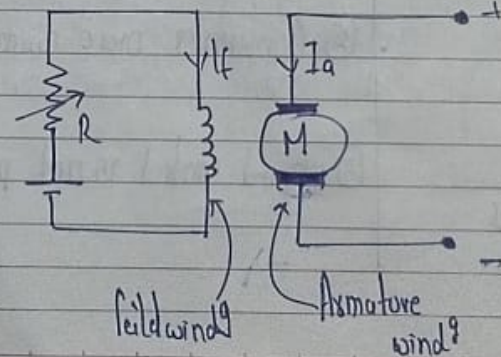 +
If
Ia
R
M
Feild windg
Armature
windg
-